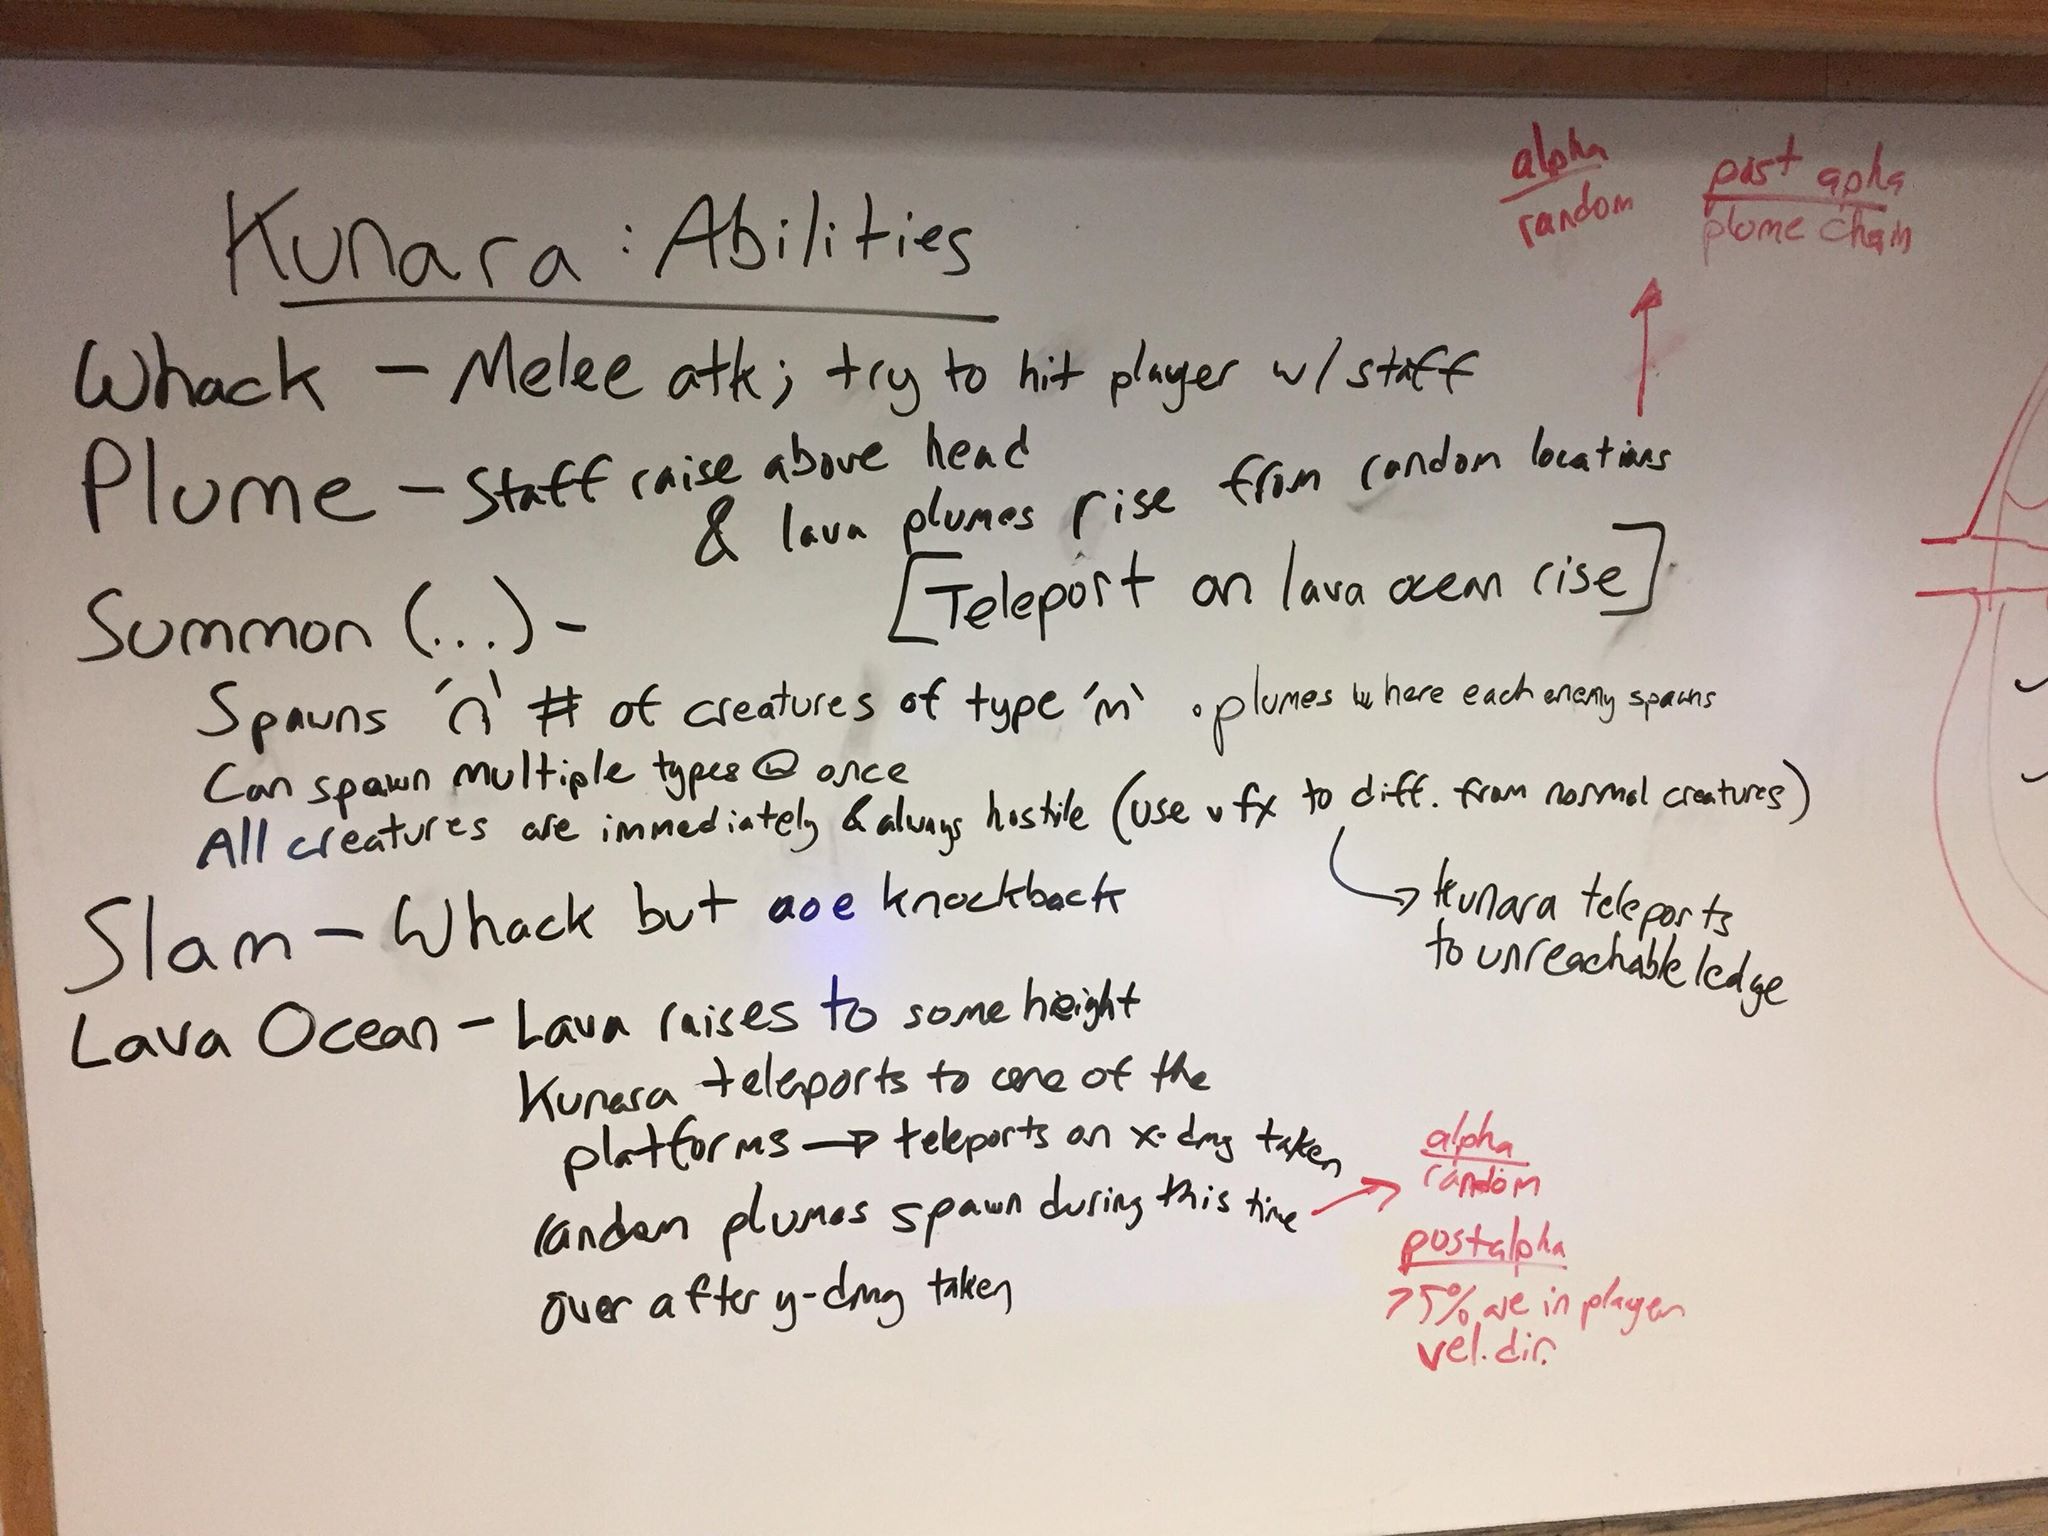 Kunara : Abilities
alpha
random
post apha
plume chain
Whack - Melee atk; try to hit player w/ staff
Plume - Staff raise above head
& lava plumes rise from random locations
[Teleport on lava ocean rise]
Summon (...) -
Spawns 'n' # of creatures of type 'm' . plumes where each enemy spawns
Can spawn multiple types @ once
All creatures are immediately & always hostile (use vfx to diff. from normal creatures)
Kunara teleports
to unreachable ledge
Slam - Whack but aoe knockback
Lava Ocean - Lava raises to some height
Kunara teleports to one of the
platforms → teleports on x-dmg taken
random plumes spawn during this time
over after y-dmg taken
alpha
random
postalpha
75% are in player
vel. dir.